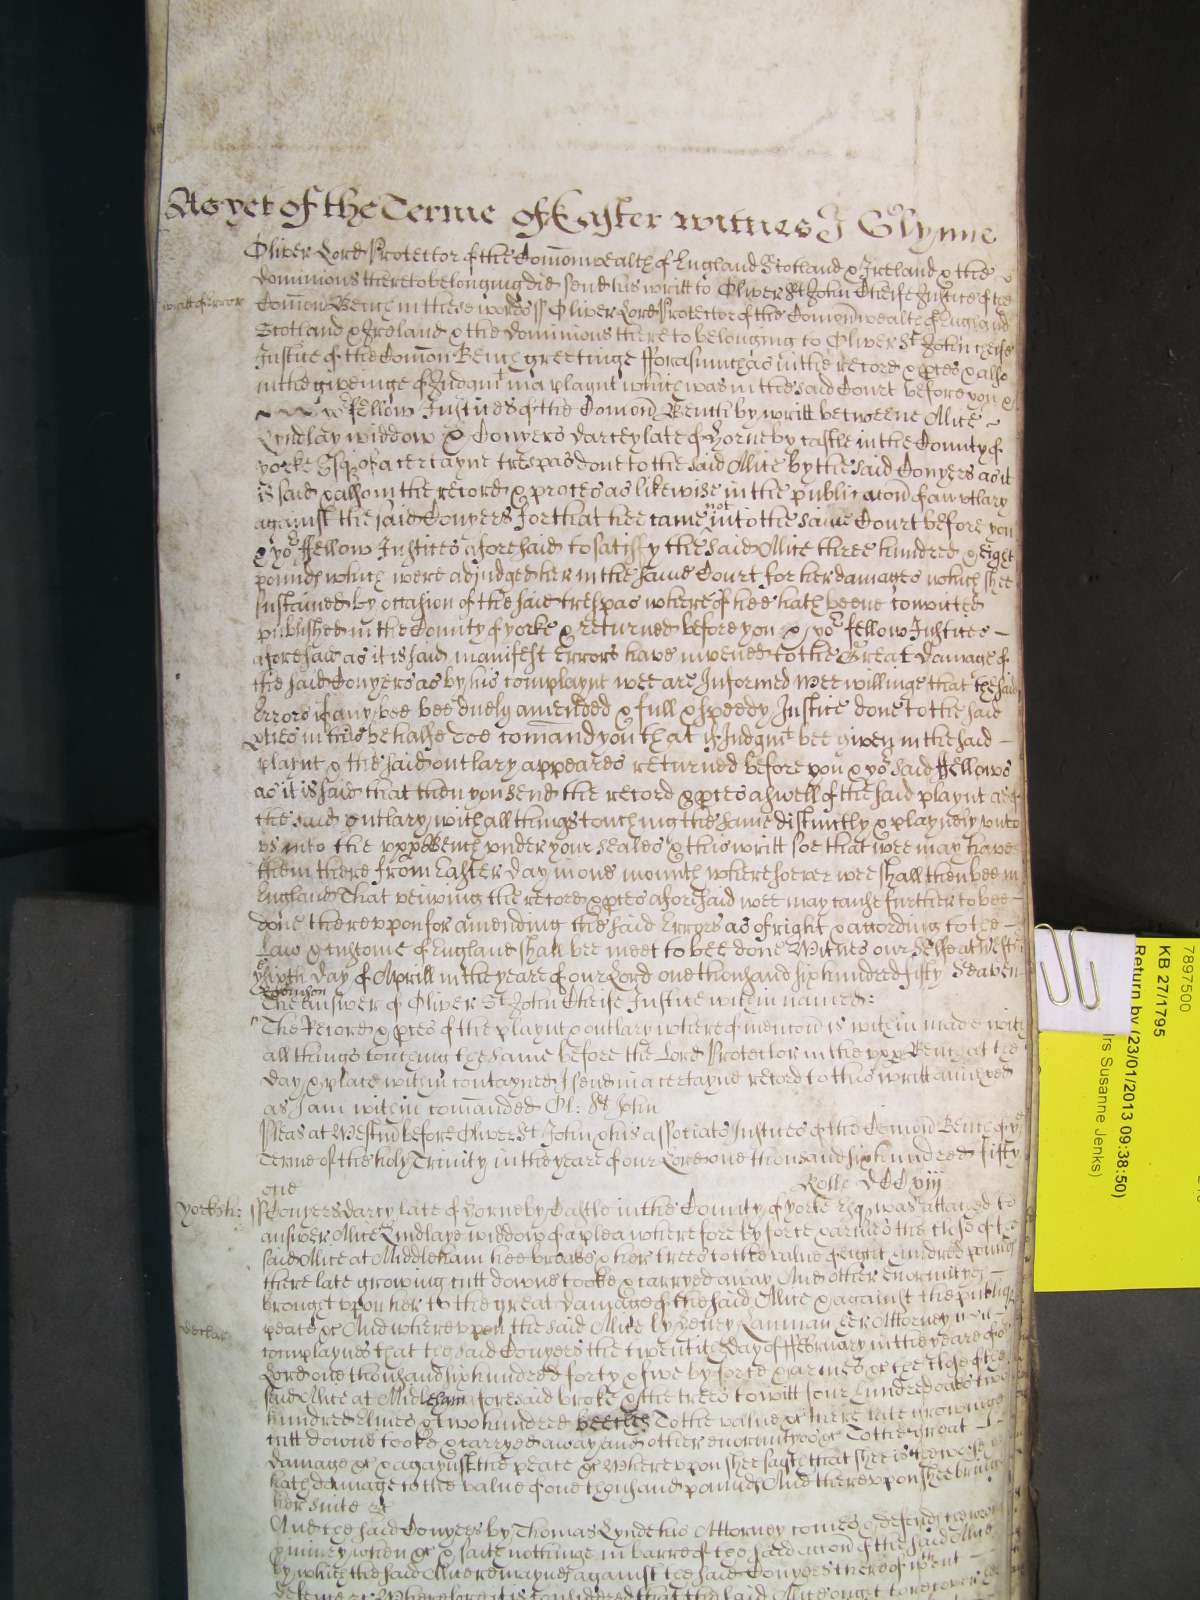 As yet of the Terme of Easter witnes J Glynne
Oliver Lord Protector of the Comonwealth of England Scotland & Ireland & the
dominions thereto belonging did send his writt to Oliver St John Cheife Justice of the
writt of Error
Comon Bench in these words ss Oliver Lord Protector of the Comonwealth of England
Scotland & Ireland & the dominions there to belonging to Oliver St John cheife
Justice of the Comon Bench greetinge fforasmuch as in the record & pces & alsoe
in the giveinge of Judgmt in a playnt which was in the said Court before you &
yor fellow Justices of the Comon Bench by writt betweene Alice
Lyndlay widdow & Conyers Darcey late of Horneby castle in the County of
yorke Esqr of a certayne trespas done to the said Alice by the said Conyers as it
is said & alsoe in the record & proces as likewise in the publicacon of an utlary
against the said Conyers for that hee came not into the same Court before you
& yor ffellow Justices aforesaid to satisfy the said Alice three hundred & eight
pounds which were adjudged her in the same Court for her damages which shee
sustained by occasion of the said trespas whereof hee hath beene convicted
published in the County of yorke & returned before you & yor fellow Justices
aforesaid as it is said manifest Errors have invened to the Great Damage of
the said Conyers as by his complaynt wee are Informed Wee willinge that the said
Errors if any bee bee duely amended & full & speedy Justice done to the said
pties in this behalfe doe comand you that if Judgmt bee given in the said
playnt & the said outlary appeares returned before you & yor said ffellows
as it is said that then you send the record & pces aswell of the said playnt as of
the said outlary with all things touching the same distinctly & playnely unto
us into the uppr Bench under your Seales & this writt soe that wee may have
them there from Easter Day in one mounth wheresoever wee shall then bee in
England That veiwing the record & pces aforesaid wee may cause further to bee
done thereupon for amending the said Errors as of right & according to the
Law & custome of England shall bee meet to bee done Witnes our Selfe at Westmr
the sixth day of Aprill in the yeare of our Lord one thousand six hundred fifty Seaven
Robinson
The Answer of Oliver St John Cheife Justice within named:
The Record & pces of the playnt & outlary whereof mencon is within made with
all things touching the same before the Lord Protector in the uppr Bench at the
day & place within contayned I send in a certayne record to this writt annexed
as I am within comanded Ol: St John
Pleas at Westmr before Oliver St John & his associats Justices of the Comon Bench of ye
Terme of the holy Trinity in the yeare of our Lord one thousand six hundred fifty
one Rolle DCC viij
Yorksh: ss Conyers Darcy late of Horneby Castle in the County of yorke Esqr was attached to
answer Alice Lindlaye widdow of a plea wherefore by force & armes the close of the
said Alice at Middleham hee broake & her trees to the value of eight hundred pounds
there late growing cutt downe tooke & carryed away And other enormityes
brought upon her to the great damage of the said Alice & against the publique
peace &c And whereupon the said Alice by Attorney
declar:
complaynes that the said Conyers the twentieth day of ffebruary in the yeare of our
Lord one thousand six hundred forty & five by force & armes &c the close of the
said Alice at Midleham aforesaid broke & the trees to witt four hundred oakes two
hundred Elmes & two hundred beeches To the value &c there late growinge
cutt downe tooke & carryed away and other enormityes &c To the great
damage &c & agaynst the peace &c Whereupon shee sayth that shee is the worse &
hath damage to the value of one thousand pounds And thereupon shee brings
her suite &c
And the said Conyers by Thomas Lynde his Attorney comes & defends the wrong
& injury when &c & saith nothinge in barre of the said accon of the said Alice
by which the said Alice remaynes against the said Conyers thereof without
defence &c Wherefore it is considered that the said Alice ought to recover her
7897500
KB 27/1795
Return by (23/01/2013 09:38:50)
rs Susanne Jenks)